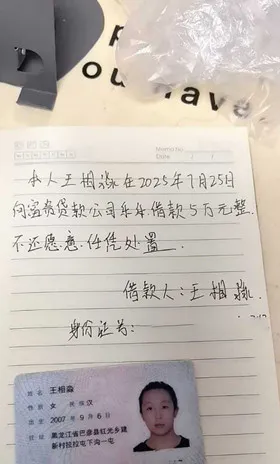 ou have
Memo No.
Date / /
本人王相淼在2025年7月25日
向富贵贷款公司乐乐借款5万元整
不还愿意.任凭处置.
借款人:王相淼.
身份证号:
姓名 王相淼
性别 女 民族 汉
2007年9月6日
黑龙江省巴彦县红光乡建
新村拉拉屯下沟一屯